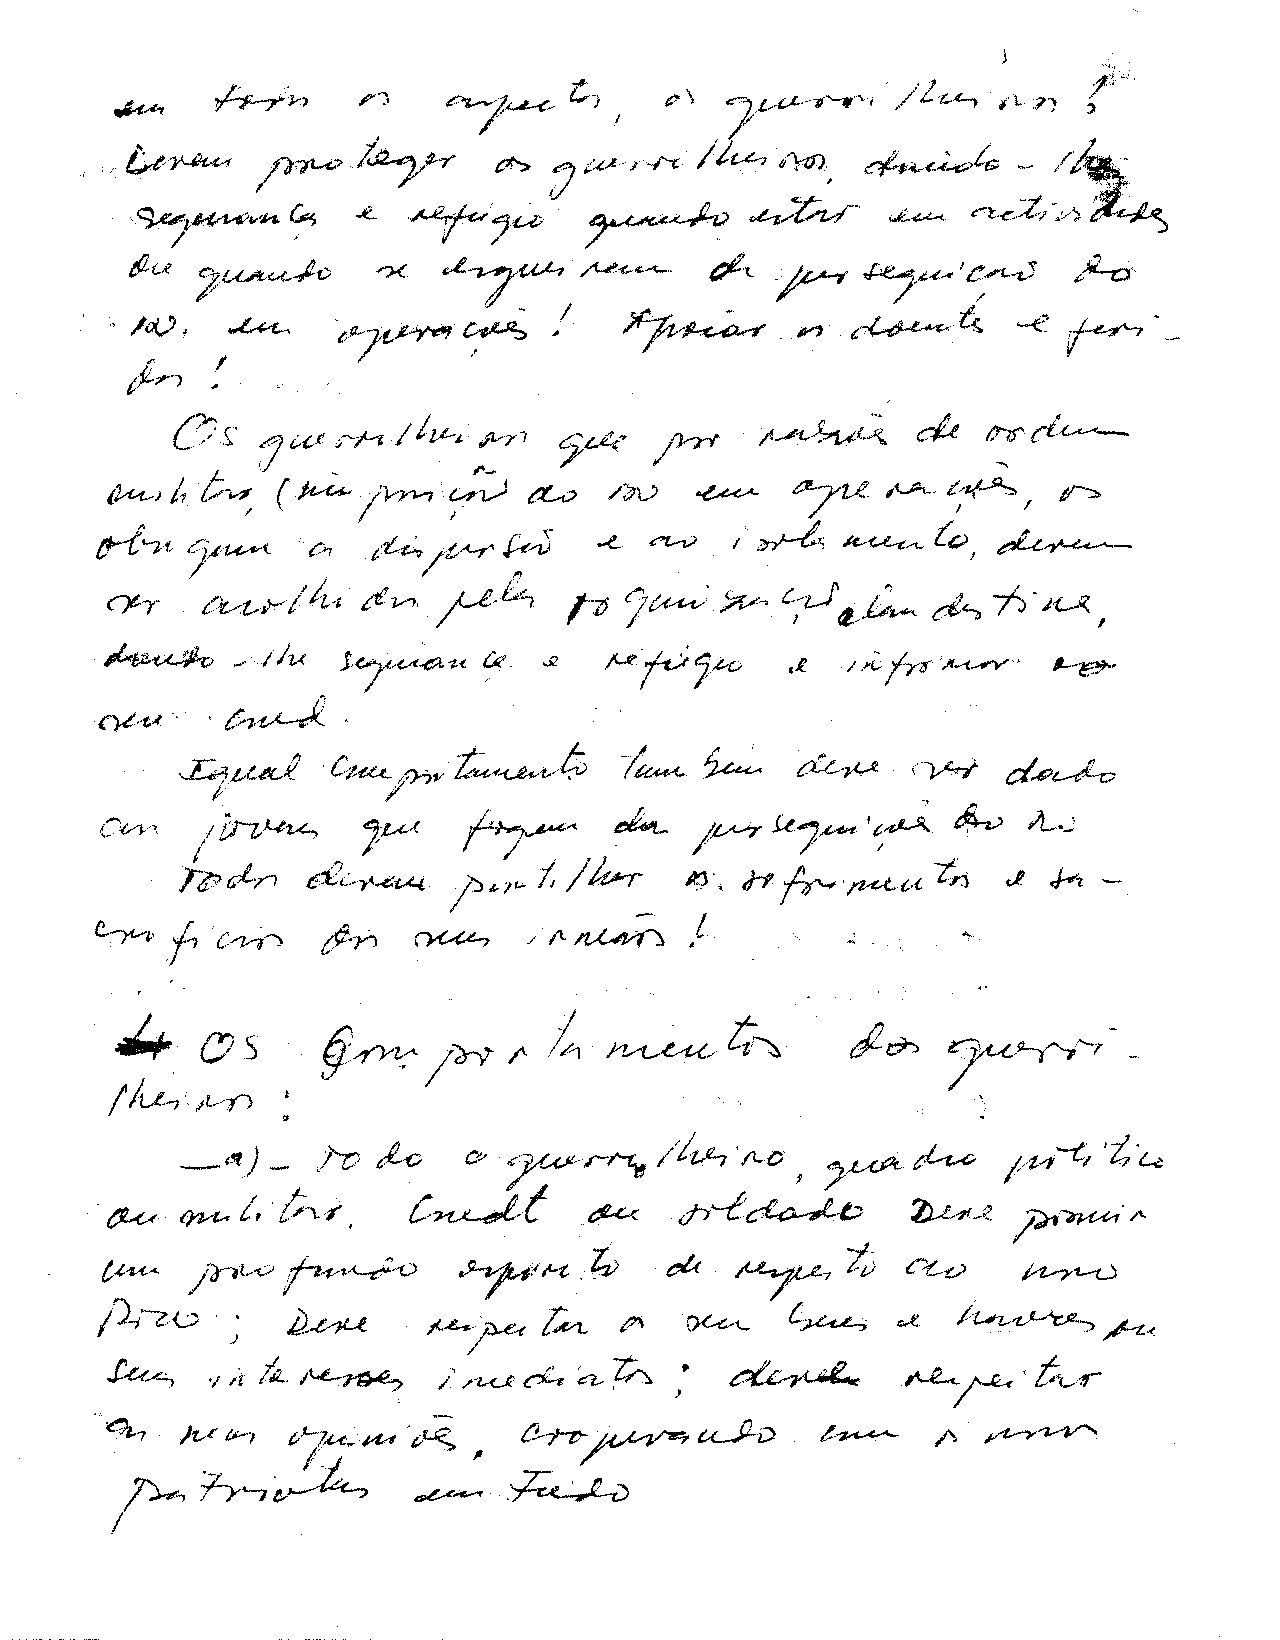 em todos os aspectos, os guerrilheiros!
Devem proteger os guerrilheiros, dando-lhe
segurança e refúgio quando estar em actividades
ou quando se erguerem da perseguição do
in. em operações! Apoiar os doentes e feri-
dos!
Os guerrilheiros que por razões de ordem
militar, (imposição do in em operações, os
obriguem a dispersão e ao isolamento, devem
ser acolhidos pela organização clandestina,
dando-lhe segurança e refúgio e informar ao
seu cmd.
Igual comportamento tambem deve ser dado
aos jovens que fogem da perseguição do in
Todos devem partilhar os sofrimentos e sa-
crificios dos seus irmãos!
Os Comportamentos dos guerri-
lheiros:
-a)- Todo o guerrilheiro, quadro político
ou militar, Cmdt ou soldado Deve possuir
um profundo espirito de respeito ao nosso
Povo; Deve respeitar os seus bens e haveres ou
seus interesses imediatos; deve respeitar
as suas opiniões, cooperando com os nossos
patriotas em Tudo